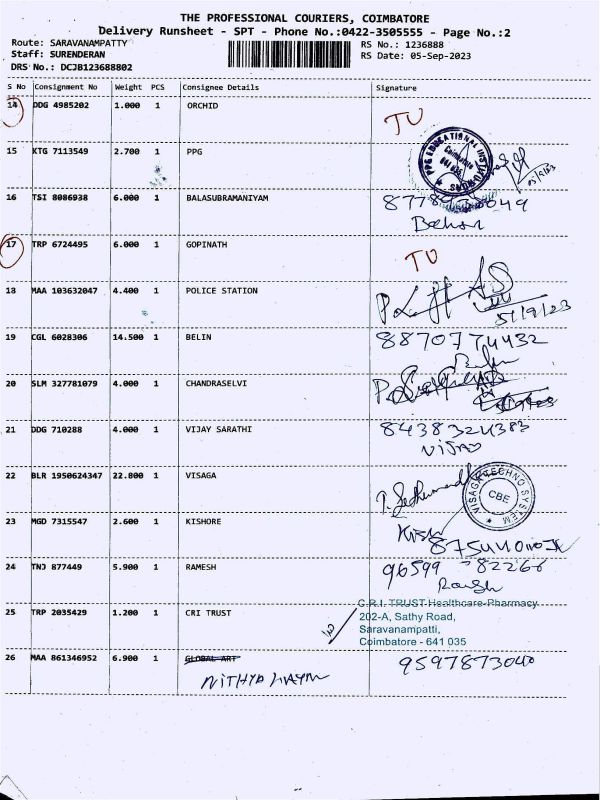 THE PROFESSIONAL COURIERS, COIMBATORE
Delivery Runsheet - SPT - Phone No.:0422-3505555 - Page No.:2
Route: SARAVANAMPATTY RS No.: 1236888
Staff: SURENDERAN RS Date: 05-Sep-2023
DRS No.: DCJB123688802
S No Consignment No Weight PCS Consignee Details Signature
14 DDG 4985202 1.000 1 ORCHID TU
15 KTG 7113549 2.700 1 PPG
PPG EDUCATIONAL INSTITUTIONS Coimbatore 641 035
16 TSI 8086938 6.000 1 BALASUBRAMANIYAM
17 TRP 6724495 6.000 1 GOPINATH TU
18 MAA 103632047 4.400 1 POLICE STATION
5/9/23
19 CGL 6028306 14.500 1 BELIN 8870774432
20 SLM 327781079 4.000 1 CHANDRASELVI
21 DDG 710288 4.000 1 VIJAY SARATHI 8438324383
22 BLR 1950624347 22.800 1 VISAGA
VISAGA TECHNO SYSTEM CBE
23 MGD 7315547 2.600 1 KISHORE
24 TNJ 877449 5.900 1 RAMESH 96599 - 82266
25 TRP 2035429 1.200 1 CRI TRUST
C.R.I. TRUST Healthcare-Pharmacy
202-A, Sathy Road,
Saravanampatti,
Coimbatore - 641 035
26 MAA 861346952 6.900 1 GLOBAL ART 9597873040